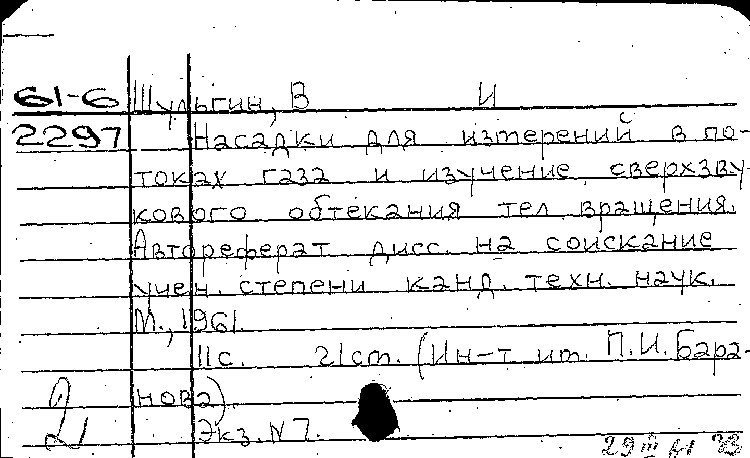 61-6 Шульгин, В И
2297 Насадки для измерений в по-
токах газа и изучение сверхзву-
кового обтекания тел вращения.
Автореферат дисс. на соискание
учен. степени канд. техн. наук.
М., 1961.
11с. 21см. (Ин-т им. П.И. Бара-
нова).
Экз. N7.
29 III 61